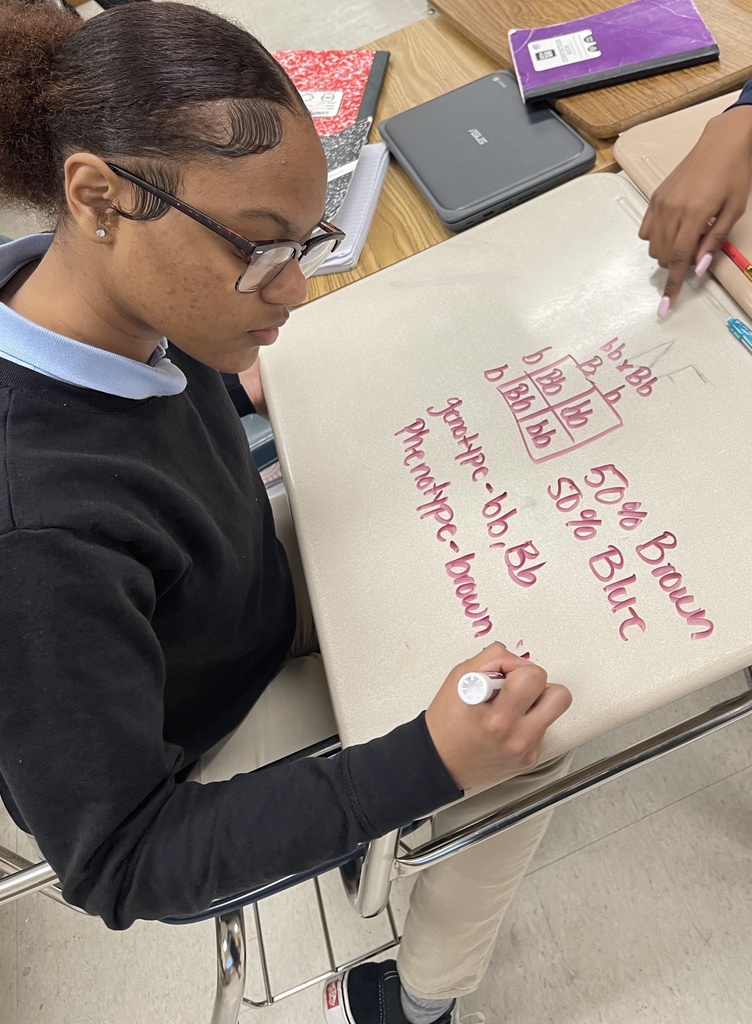 bb x Bb
B b
b Bb bb
b Bb bb
50% Brown
50% Blue
genotype - bb, Bb
Phenotype - brown
ASUS